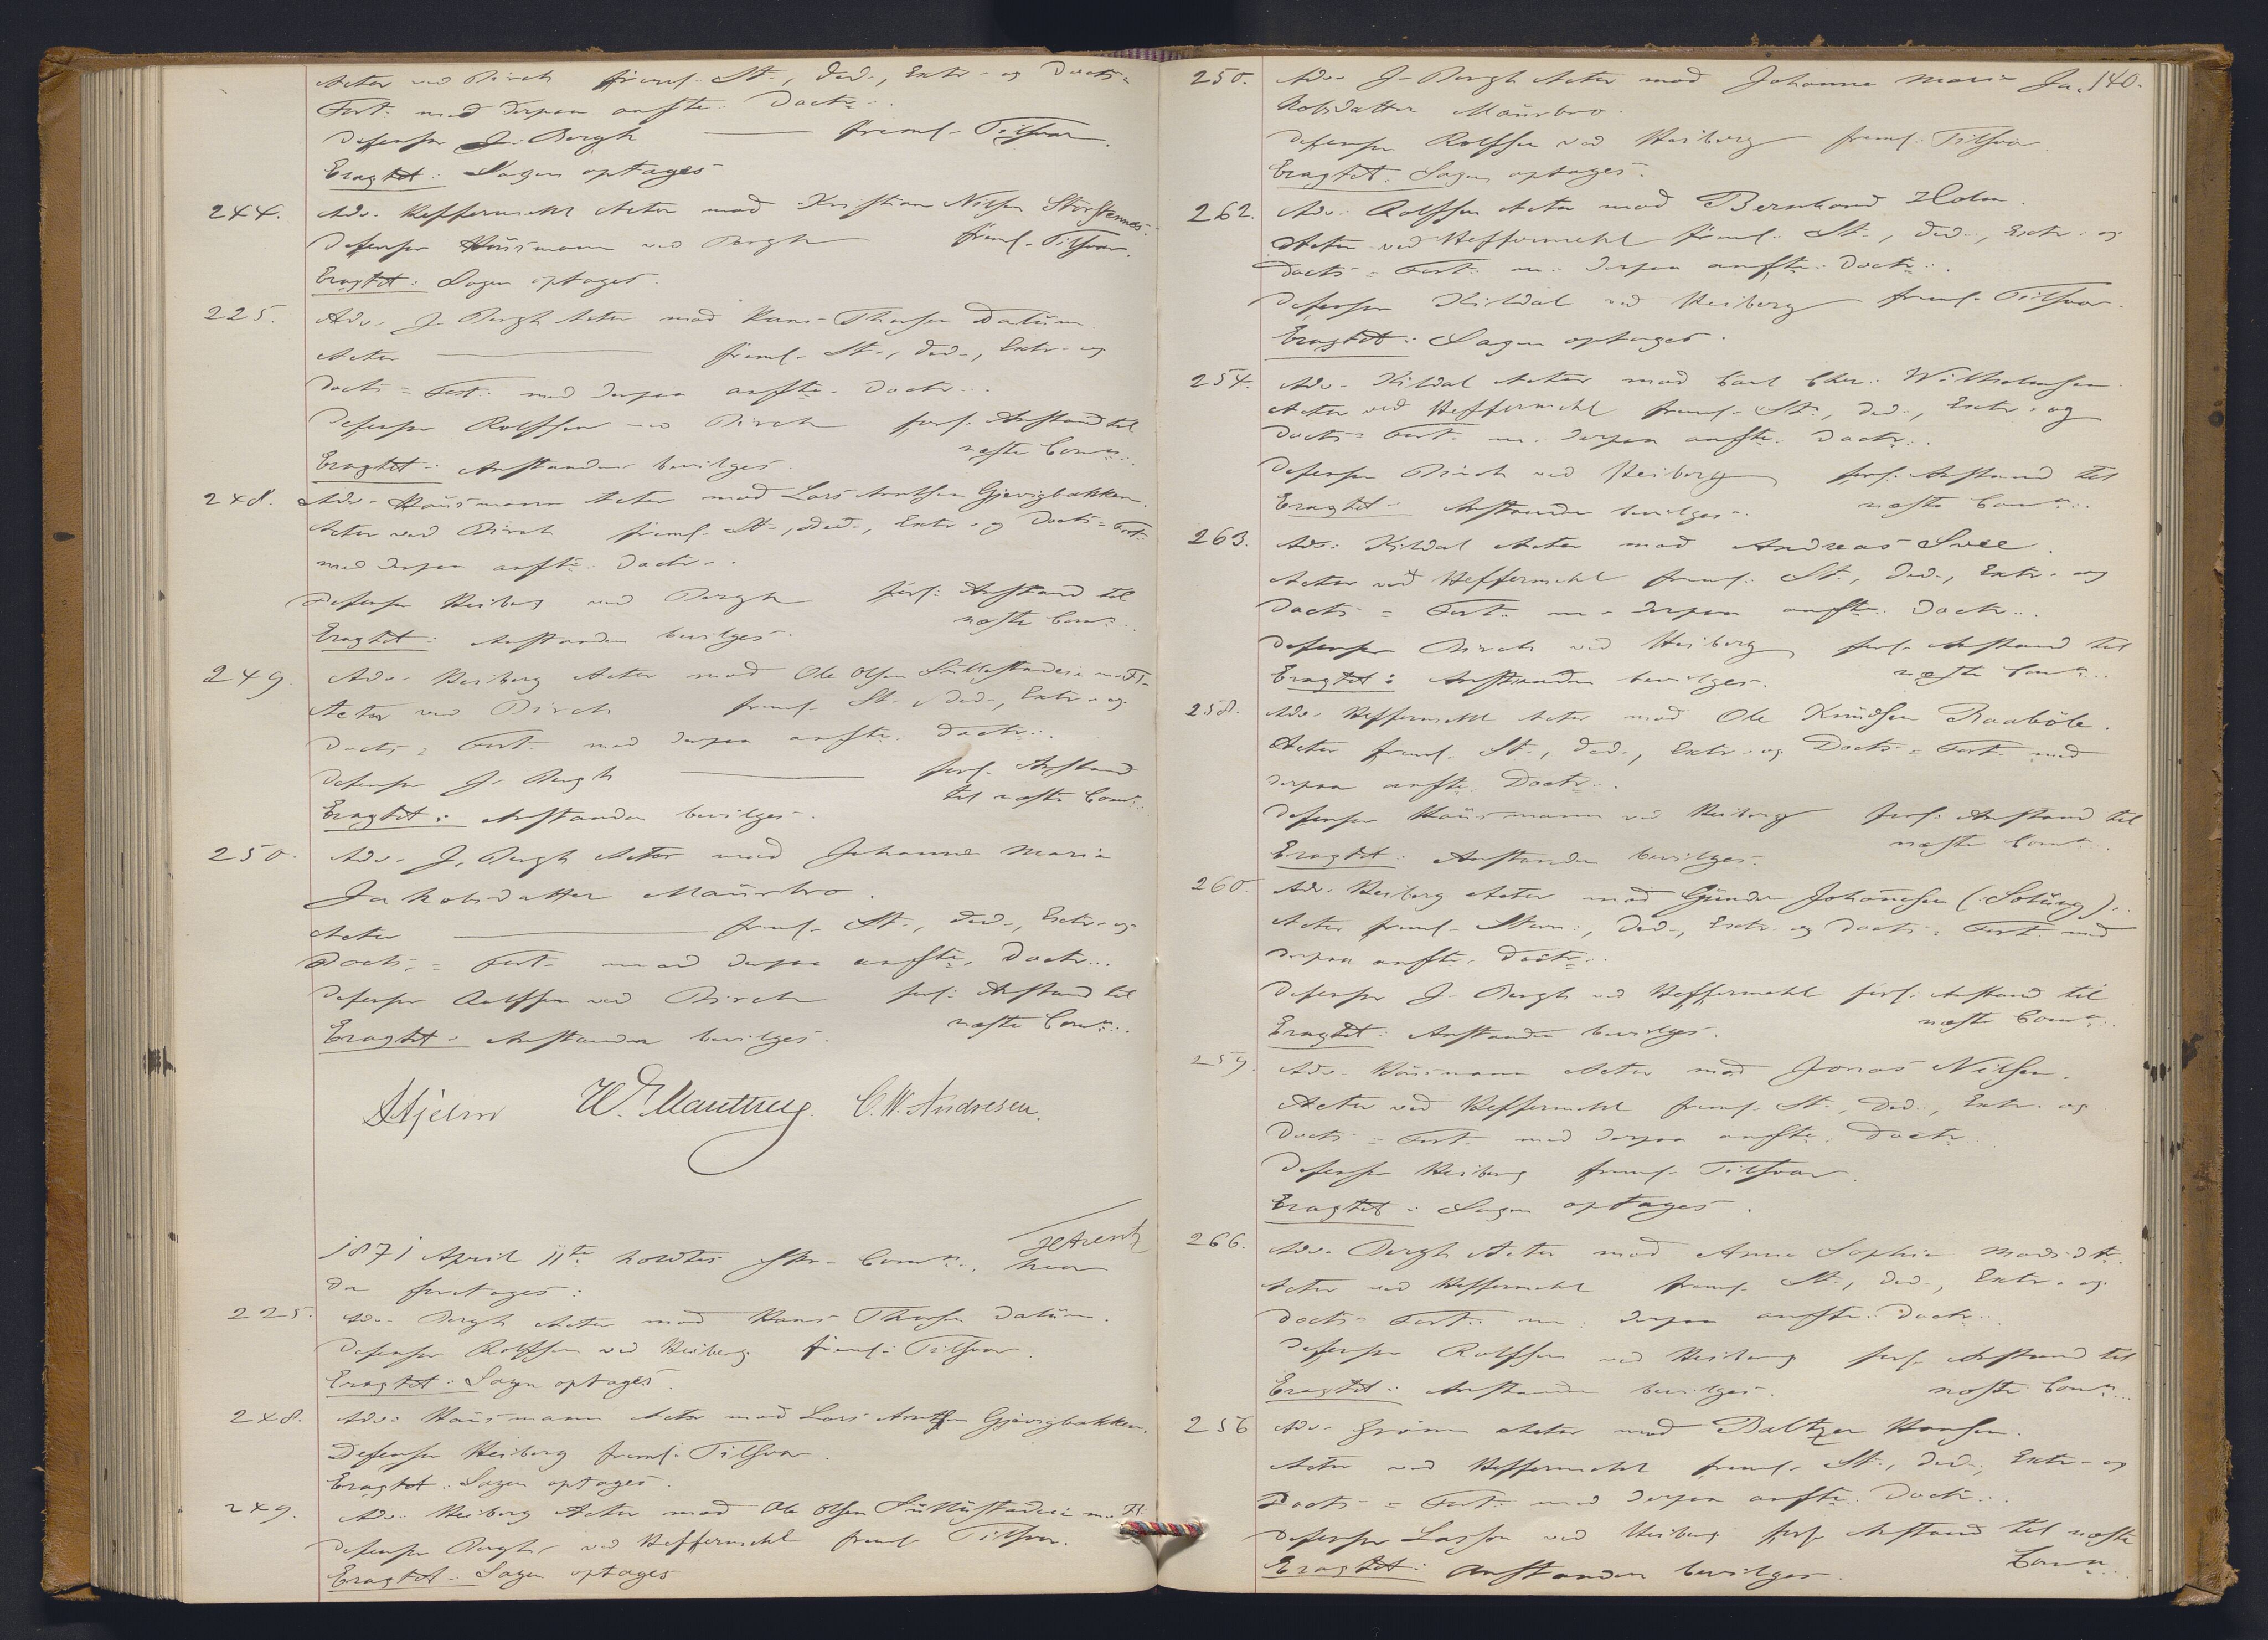 Actor ved Birch freml. St., Ded., Extr. og Docts=
Fort. med derpaa anfte. Doctr..
Defensor J. Bergh freml. Tilsvar.
Eragtet: Sagen optages
244. Adv. Heffermehl Actor mod Kristian Nilsen Storstennes.
Defensor Hausmann ved Bergh freml. Tilsvar.
Eragtet: Sagen optages.
225. Adv. J. Bergh Actor mod Hans Thorsen Dalum.
Actor freml. St., Ded., Extr. og
Docts= Fort. med derpaa anfte. Doctr...
Defensor Rolfsen ved Birch forl. Anstand til
næste Com..
Eragtet: Anstanden bevilges.
248. Adv. Hausmann Actor mod Lars Arntsen Gjøvigbakken.
Actor ved Birch freml. St., Ded., Extr. og Docts= Fort.
med derpaa anfte. Doctr..
Defensor Heiberg ved Bergh forl. Anstand til
næste Com..
Eragtet: Anstanden bevilges.
249. Adv. Heiberg Actor mod Ole Olsen m. Fl.
Actor ved Birch freml. St., Ded., Extr. og
Docts= Fort. med derpaa anfte. Doctr..
Defensor J. Bergh forl. Anstand
til næste Com..
Eragtet: Anstanden bevilges.
250. Adv. J. Bergh Actor mod Johanne Marie
Jakobsdatter Maurbro.
Actor freml. St., Ded., Extr. og
Docts= Fort. med derpaa anfte. Doctr...
Defensor Rolfsen ved Birch forl. Anstand til
næste Com..
Eragtet: Anstanden bevilges.
Hjelm W. Manthey. C. W. Andresen.
1871 April 11te holdtes Com.., hvor
da foretoges:
225. Adv. Bergh Actor mod Hans Thorsen Dalum.
Defensor Rolfsen ved Heiberg freml. Tilsvar.
Eragtet: Sagen optages.
248. Adv. Hausmann Actor mod Lars Arntsen Gjøvigbakken.
Defensor Heiberg freml. Tilsvar.
Eragtet: Sagen optages.
249. Adv. Heiberg Actor mod Ole Olsen m. Fl.
Defensor Bergh ved Heffermehl freml. Tilsvar.
Eragtet: Sagen optages
140.
250. Adv. J. Bergh Actor mod Johanne Marie Ja-
kobsdatter Maurbro.
Defensor Rolfsen ved Heiberg freml. Tilsvar.
Eragtet: Sagen optages.
262. Adv. Rolfsen Actor mod Bernhard Holm.
Actor ved Heffermehl freml. St., Ded., Extr. og
Docts= Fort. m. derpaa anfte. Doctr..
Defensor Kildal ved Heiberg freml. Tilsvar.
Eragtet: Sagen optages.
254. Adv. Kildal Actor mod Carl Chr. Wilhelmsen.
Actor ved Heffermehl freml. St., Ded., Extr. og
Docts= Fort. m. derpaa anfte. Doctr..
Defensor Birch ved Heiberg forl. Anstand til
næste Com..
Eragtet: Anstanden bevilges.
263. Adv. Kildal Actor mod Andreas Svee.
Actor ved Heffermehl freml. St., Ded., Extr. og
Docts= Fort. m. derpaa anfte. Doctr..
Defensor Birch ved Heiberg forl. Anstand til
næste Com..
Eragtet: Anstanden bevilges.
258. Adv. Heffermehl Actor mod Ole Knudsen Raabøle.
Actor freml. St., Ded., Extr. og Docts= Fort. med
derpaa anfte. Doctr..
Defensor Hausmann ved Heiberg forl. Anstand til
næste Com..
Eragtet: Anstanden bevilges.
260. Adv. Heiberg Actor mod Gunder Johannesen (Solung).
Actor freml. Stevn., Ded., Extr. og Docts= Fort. med
derpaa anfte. Doctr..
Defensor J. Bergh ved Heffermehl forl. Anstand til
næste Com..
Eragtet: Anstanden bevilges.
259. Adv. Hausmann Actor mod Jonas Nilsen.
Actor ved Heffermehl freml. St., Ded., Extr. og
Docts= Fort. med derpaa anfte. Doctr.
Defensor Heiberg freml. Tilsvar.
Eragtet: Sagen optages.
266. Adv. Bergh Actor mod Anne Sophie Madsdtr.
Actor ved Heffermehl freml. St., Ded., Extr. og
Docts= Fort. m. derpaa anfte. Doctr...
Defensor Rolfsen ved Heiberg forl. Anstand til
næste Com..
Eragtet: Anstanden bevilges.
256 Adv. Grønn Actor mod Baltzer Hansen.
Actor ved Heffermehl freml. St., Ded., Extr. og
Docts= Fort. med derpaa anfte. Doctr..
Defensor Lasson ved Heiberg forl. Anstand til næste
Com..
Eragtet: Anstanden bevilges.